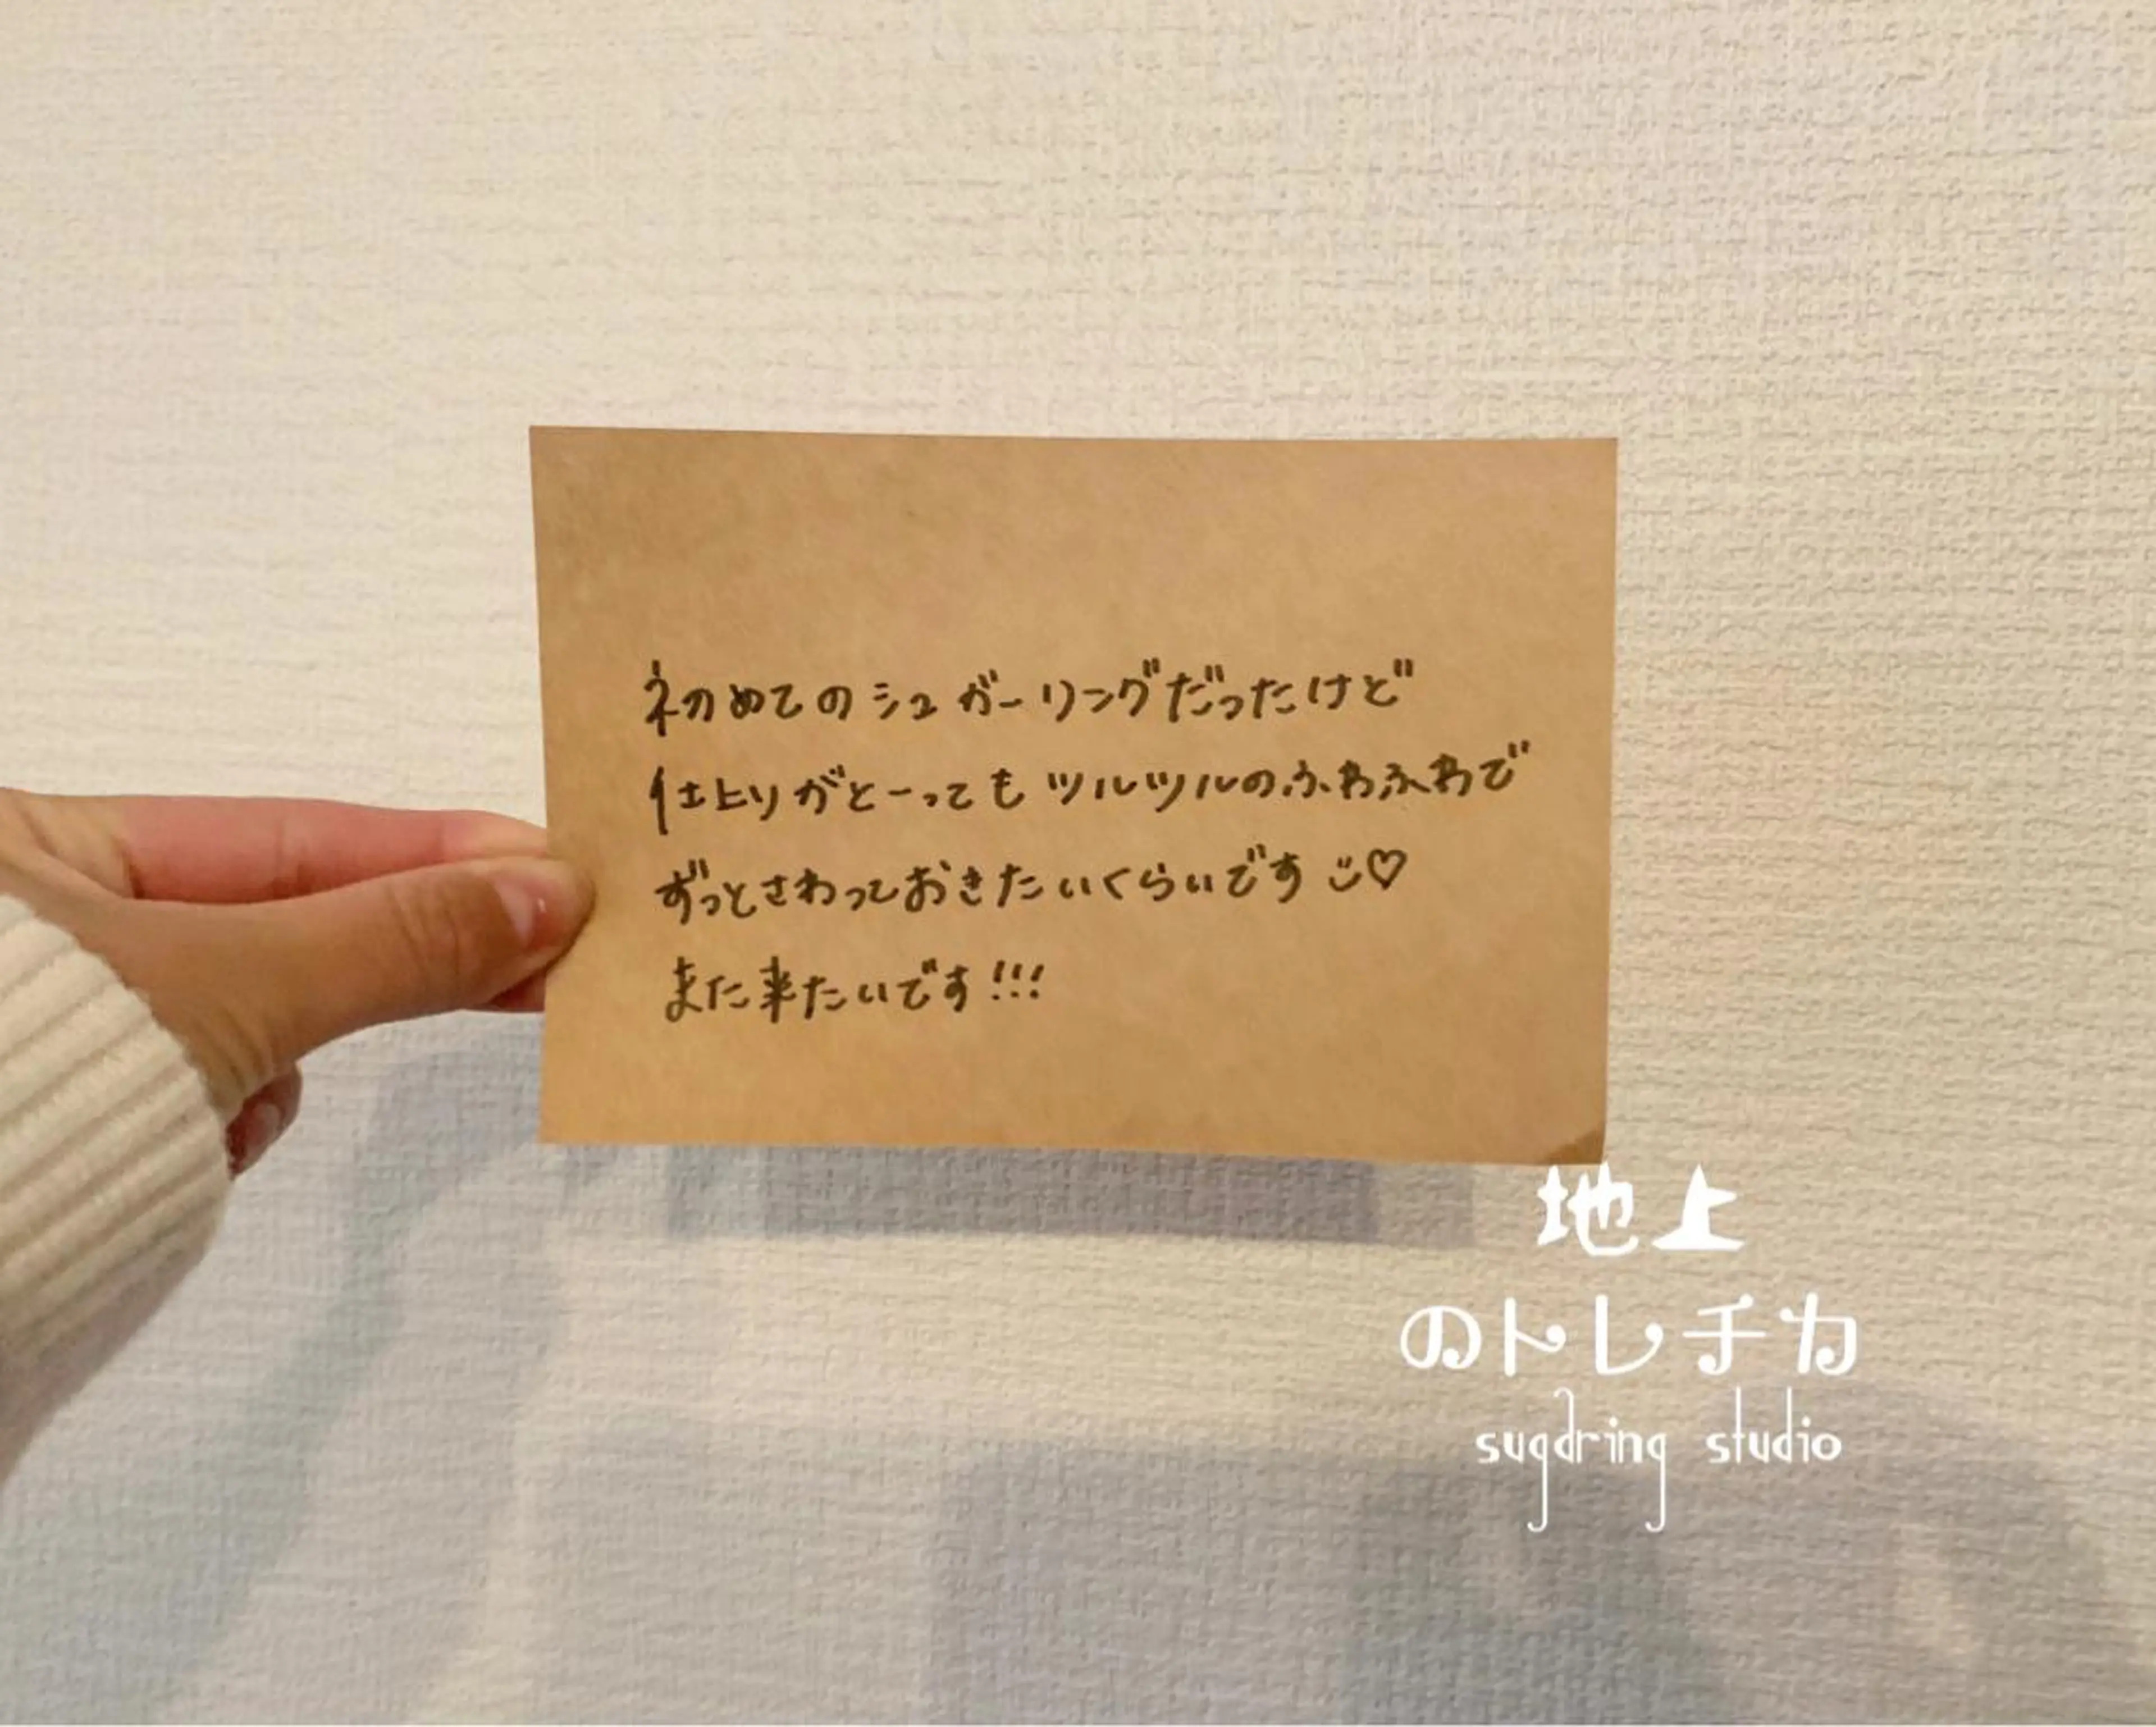 初めてのシュガーリングだったけど
仕上りがとーってもツルツルのふわふわで
ずっとさわっておきたいくらいです ♡
また来たいです!!!
地上
のトレチカ
sugaring studio